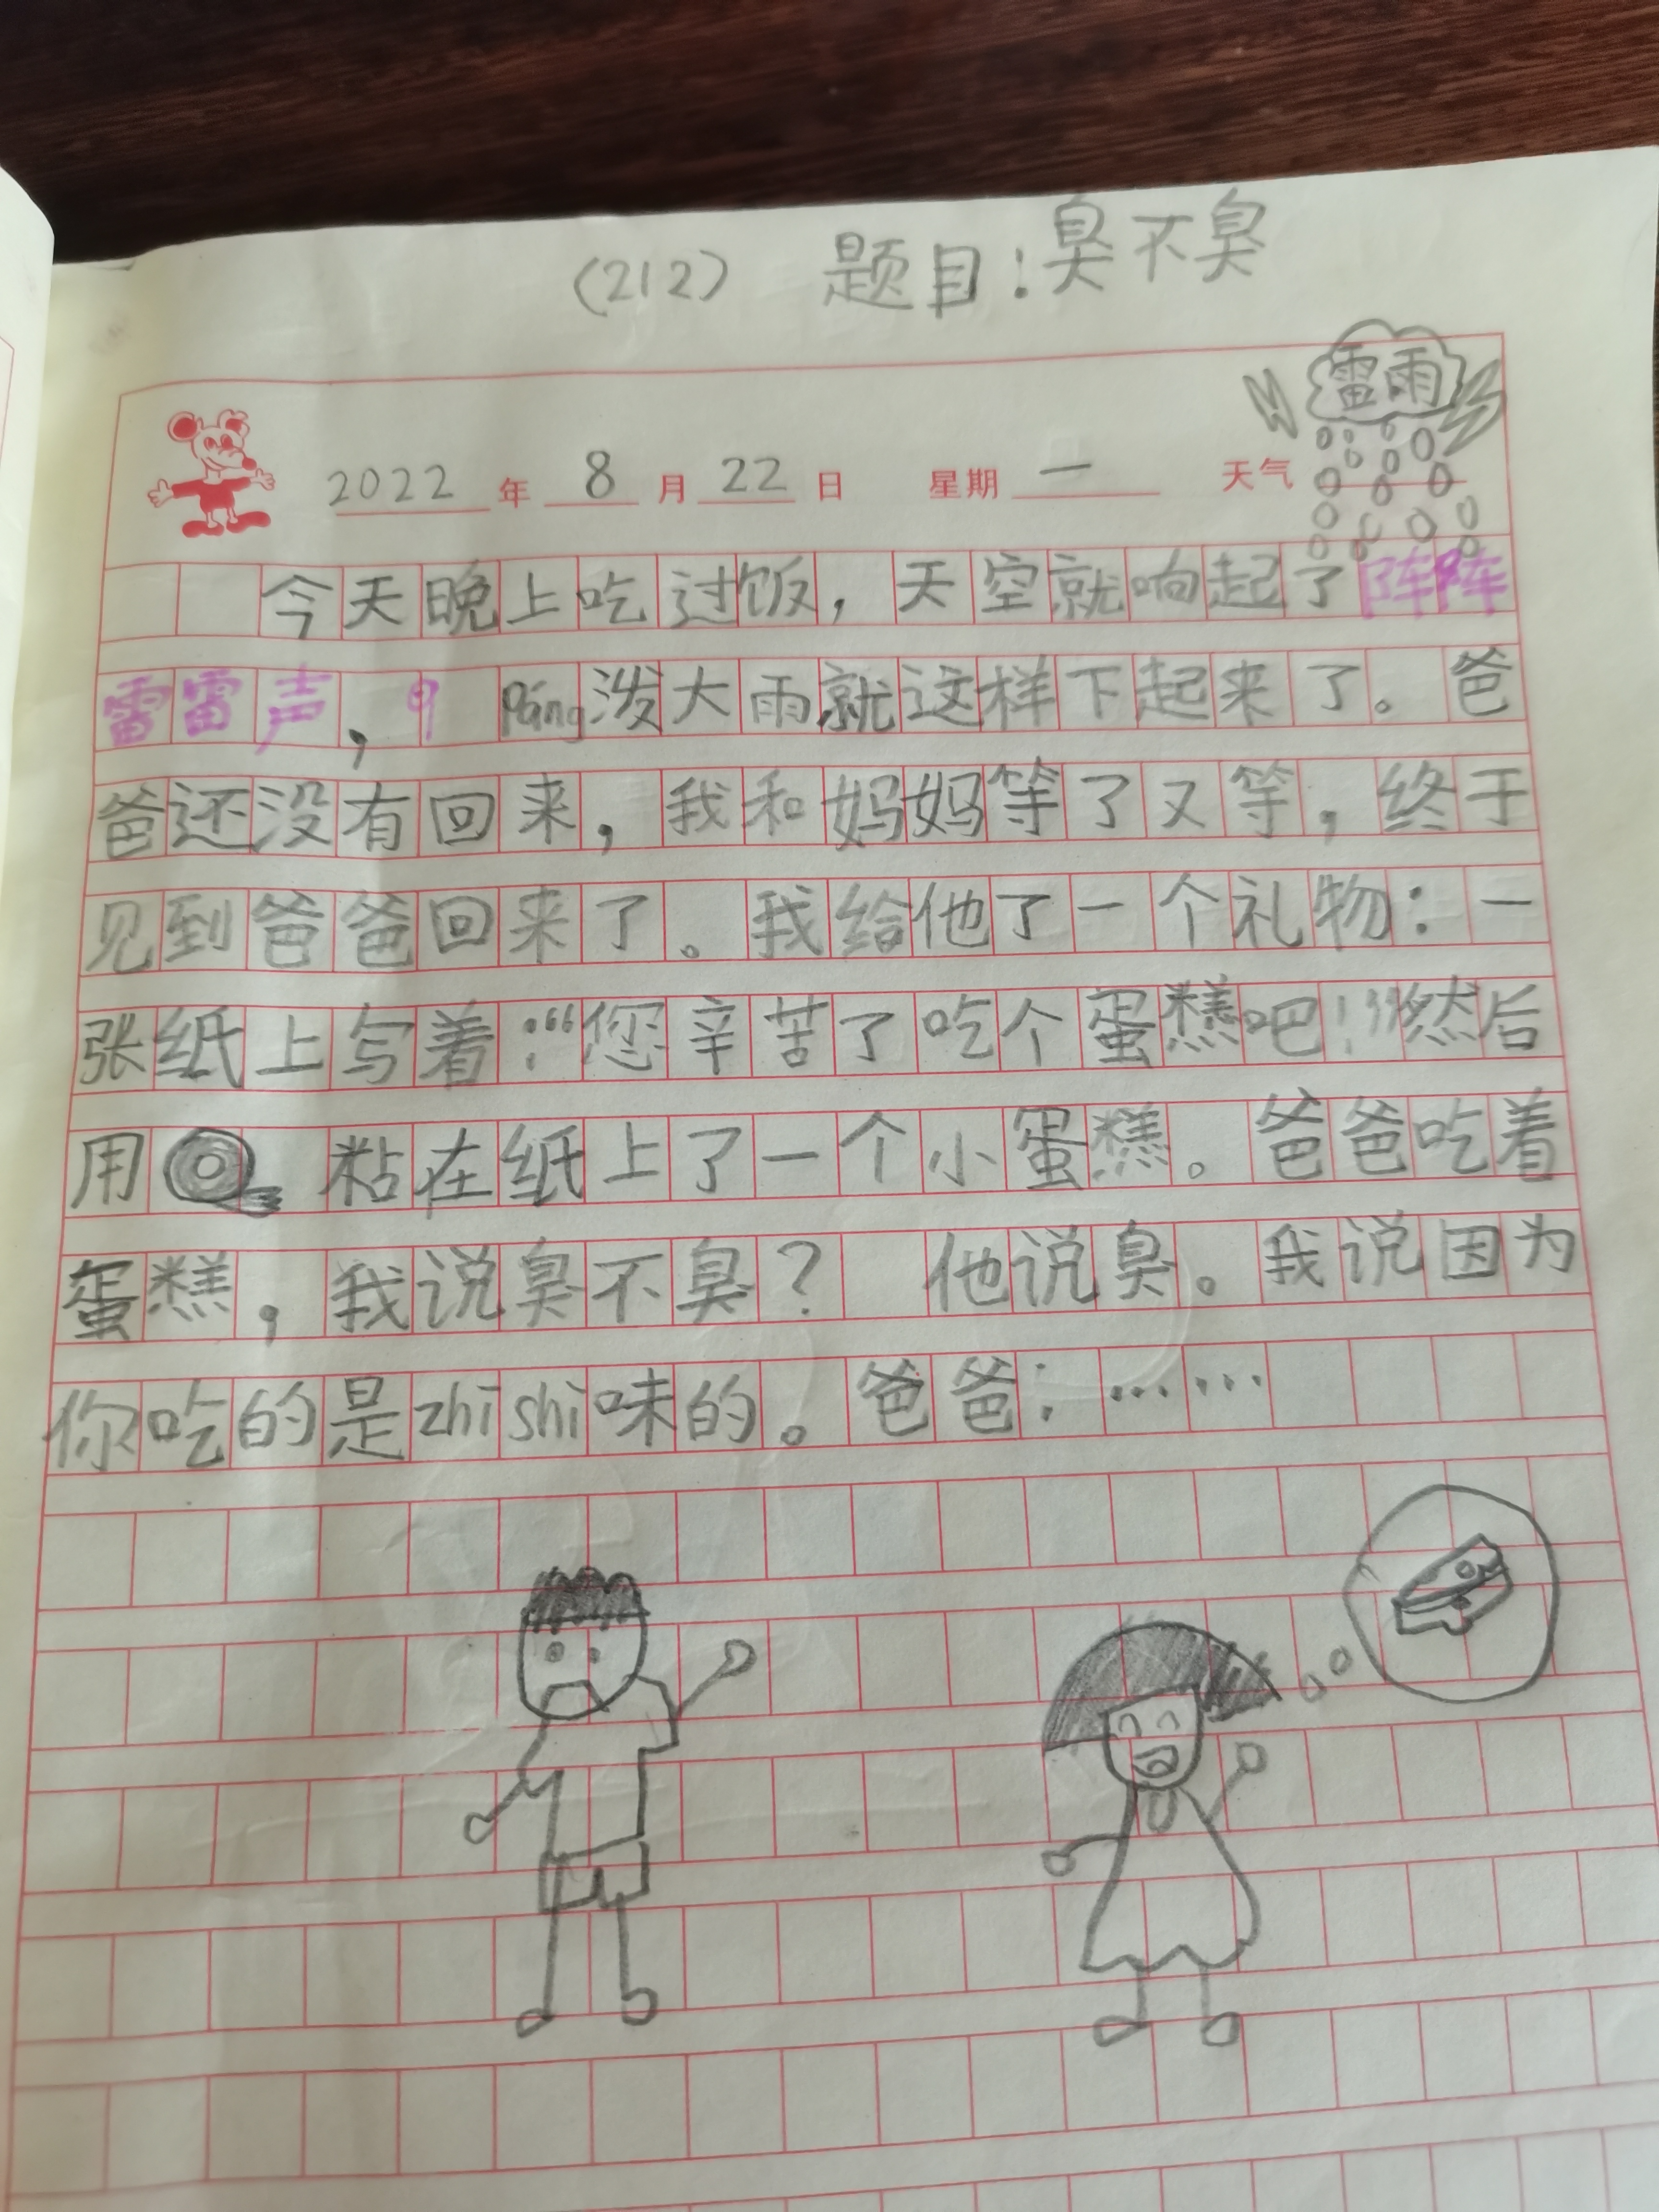 (212) 题目：臭不臭
雷雨
2022年8月22日 星期一 天气
今天晚上吃过饭，天空就响起了阵阵
雷雷声，páng泼大雨就这样下起来了。爸
爸还没有回来，我和妈妈等了又等，终于
见到爸爸回来了。我给他了一个礼物：一
张纸上写着：“您辛苦了吃个蛋糕吧！”然后
用 粘在纸上了一个小蛋糕。爸爸吃着
蛋糕，我说臭不臭？ 他说臭。我说因为
你吃的是zhi shi味的。爸爸：……